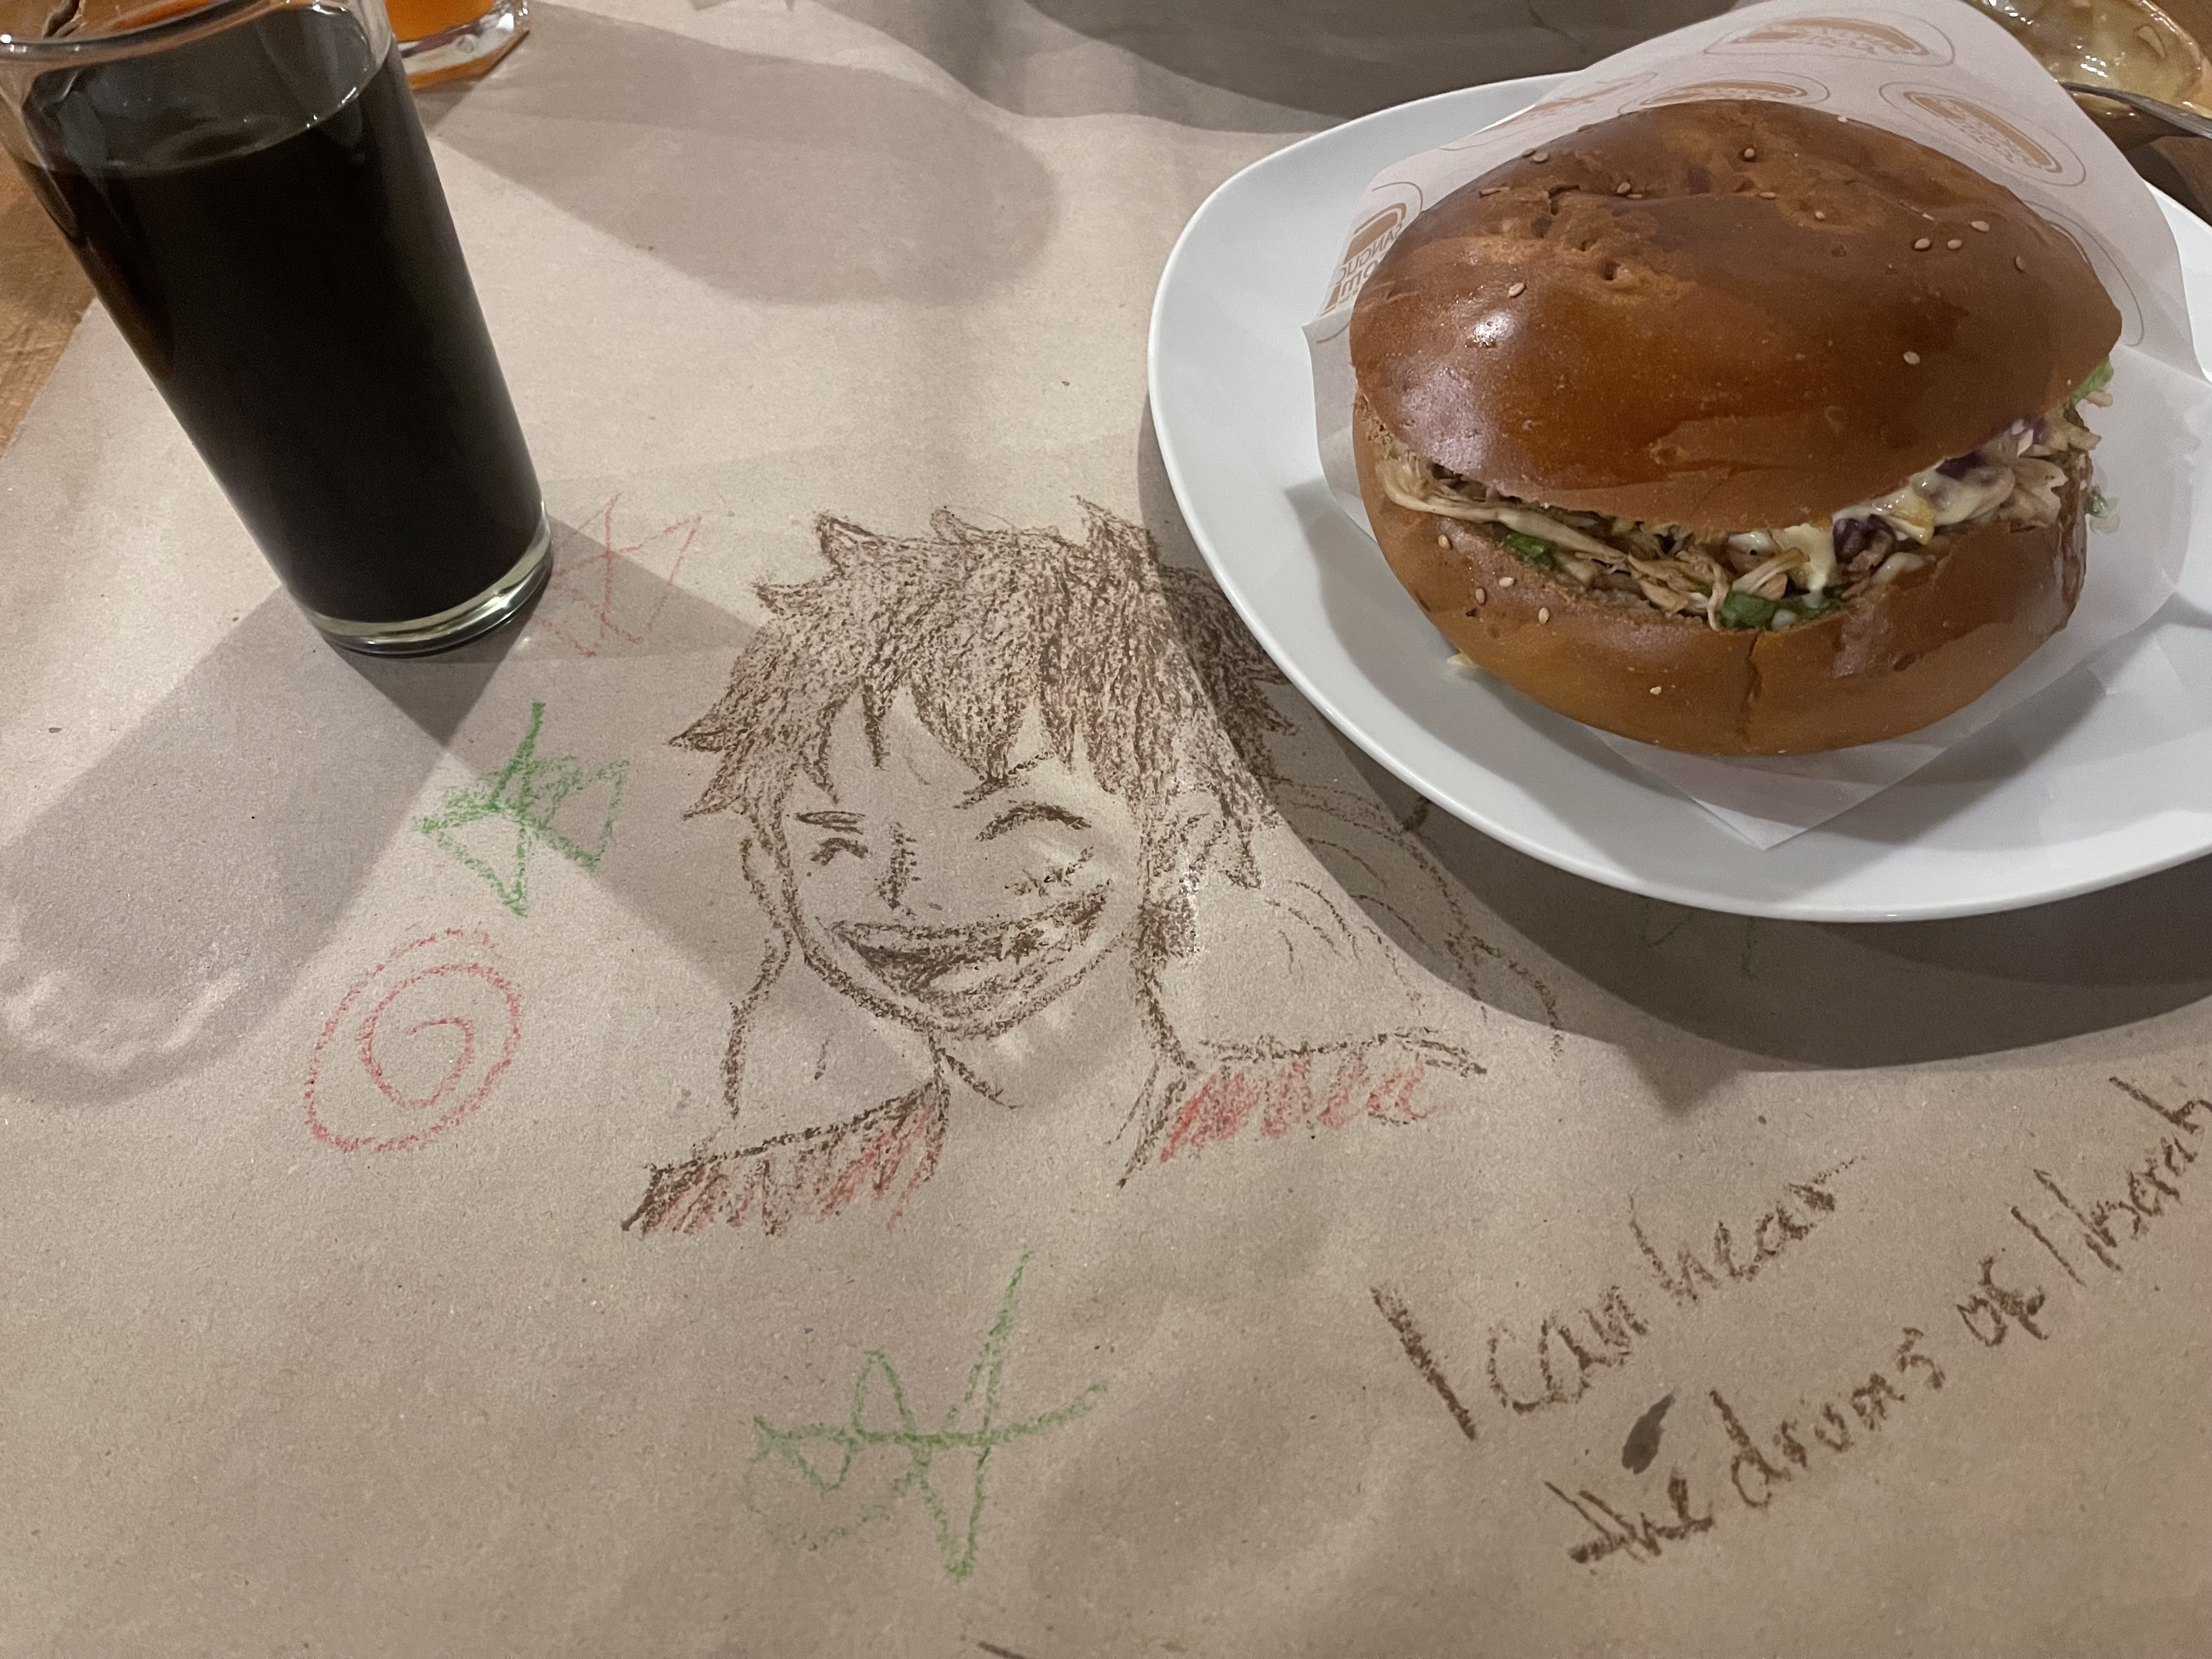 I can hear
the drums of liberat